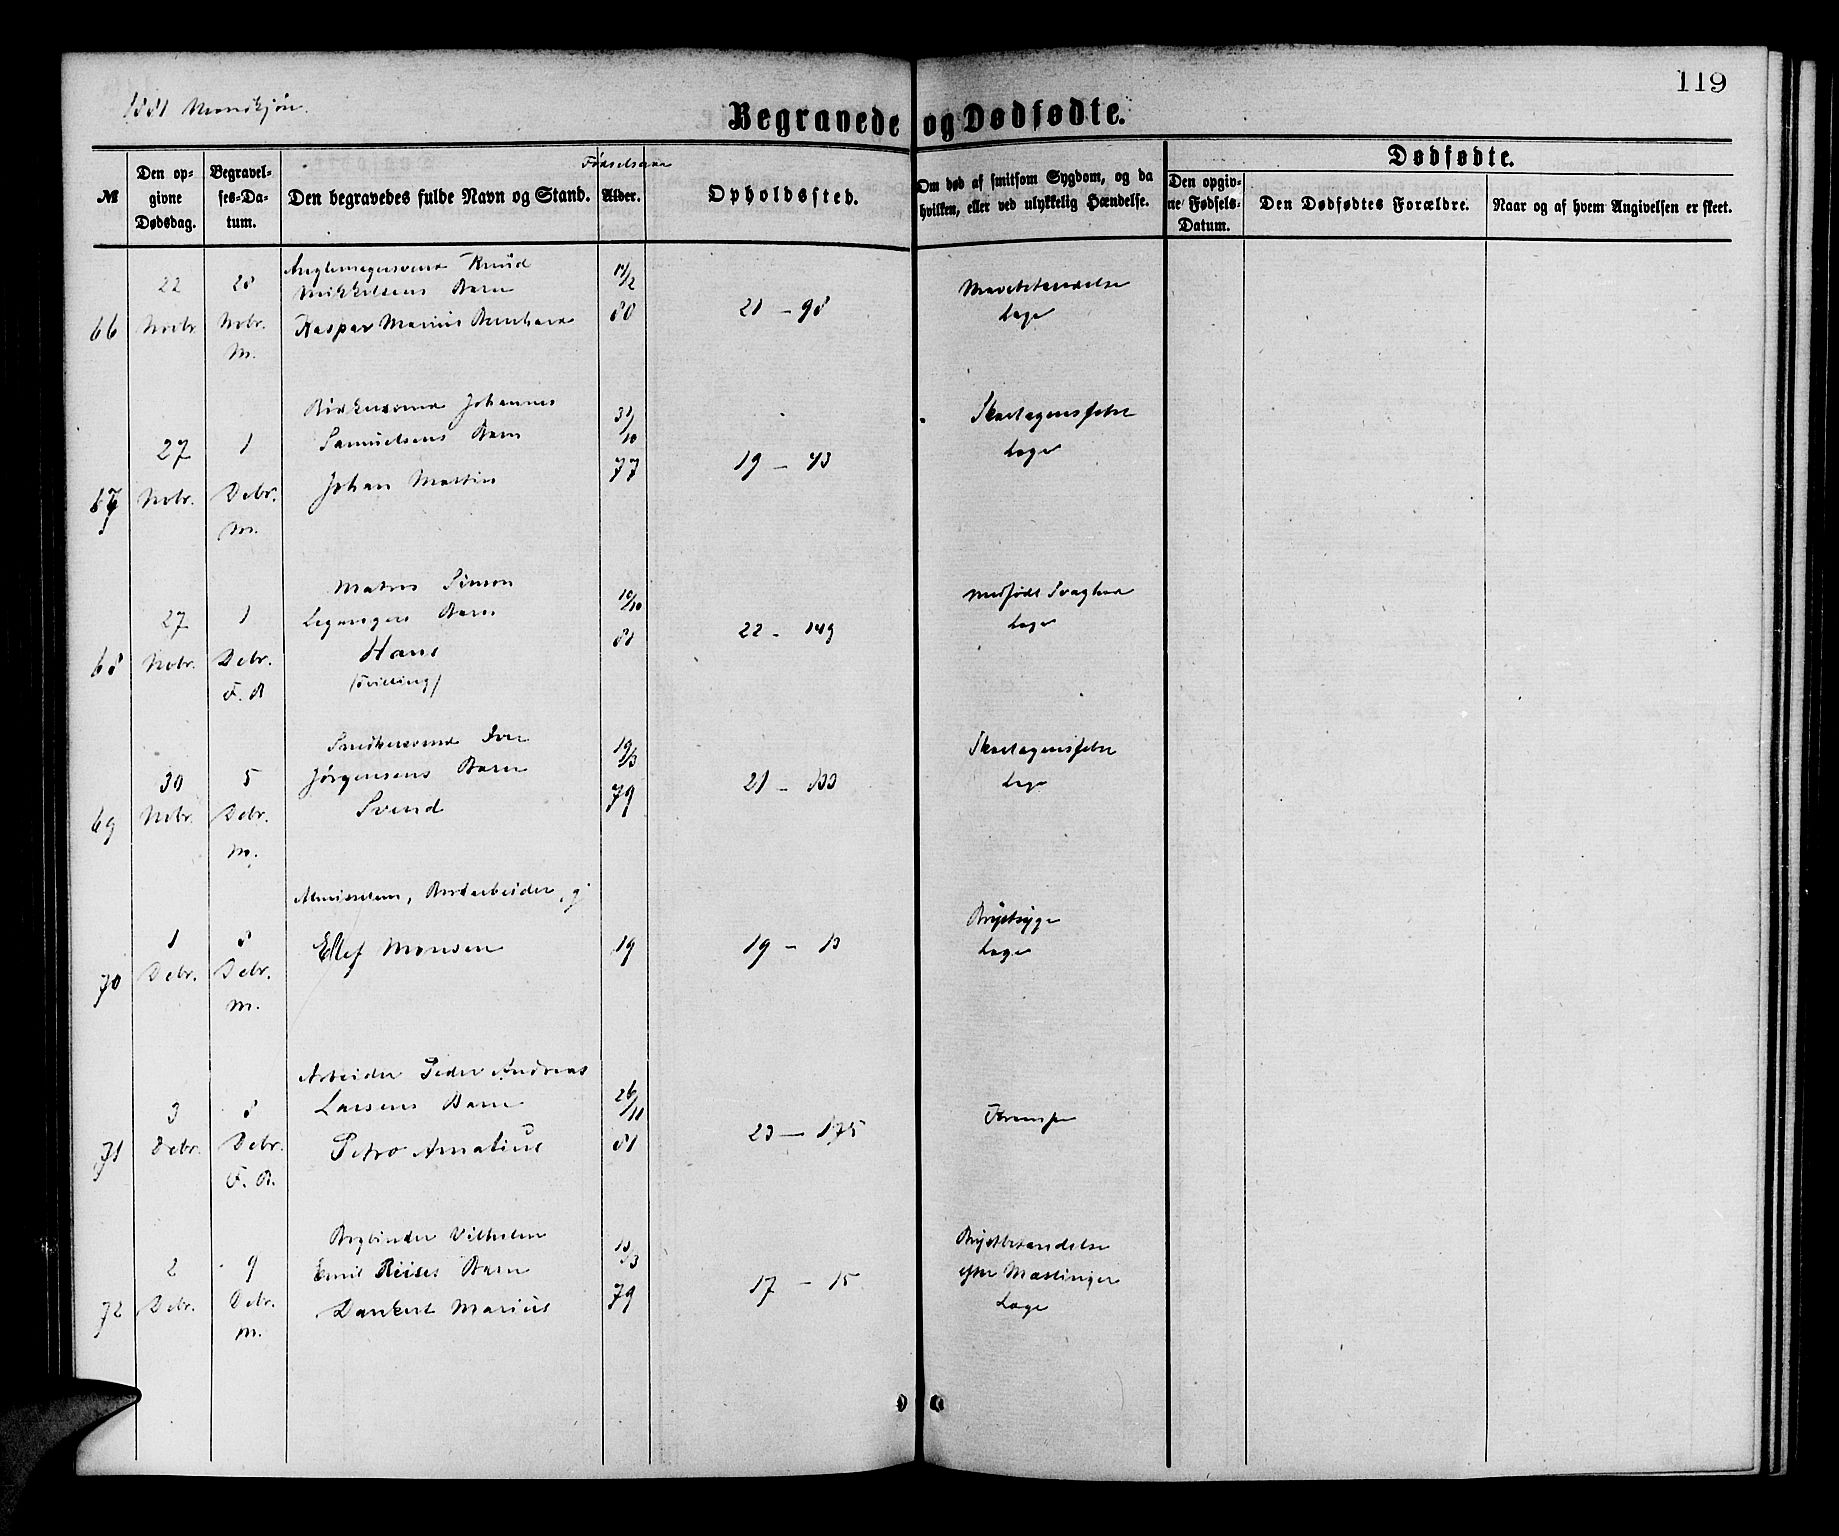 119
1881 Mandkjøn.
Begravede og Dødfødte.
Dødfødte.
№
Den opgivne Dødsdag.
Begravelses-Datum.
Den begravedes fulde Navn og Stand.
Fødselsaar
Alder.
Opholdssted.
Om død af smitsom Sygdom, og da hvilken, eller ved ulykkelig Hændelse.
Den opgivne Fødsels-Datum.
Den Dødfødtes Forældre.
Naar og af hvem Angivelsen er skeet.
66
22 Novbr
28 Nvbr. M.
Knud
Mikkelsens Barn
Kaspar Marius Bernhard
17/2 80
21 - 98
Mavebetændelse
Læge
67
27 Nvbr.
1 Debr. M.
Bødkersvend Johannes
Samuelsens Barn
Johan Martin
31/10 77
19 - 43
Skarlagensfeber
Læge
68
27 Nvbr.
1 Debr. F. B
Matros Simon
Legangers Barn
Hans
(Tvilling)
10/10 81
22 - 149
medfødt Svaghed
Læge
69
30 Nvbr.
5 Debr. M.
Snedkersvend Iver
Jørgensens Barn
Svend
19/3 79
21 - 133
Skarlagensfeber
Læge
70
1 Debr.
8 Debr. M.
Almisselem, Bordarbeider, g
Ellef Monsen
19
19 - 13
Brystsyge
Læge
71
3 Debr.
8 Debr. F. B.
Arbeider Peder Andreas
Larsens Barn
Petro Amalius
26/11 81
23 - 175
Krampe
72
2 Debr.
9 Debr. M.
Bogbinder Vilhelm
Emil Reises Barn
Dankert Marius
13/3 79
17 - 15
Brystbetændelse
efter Mæslinger
Læge